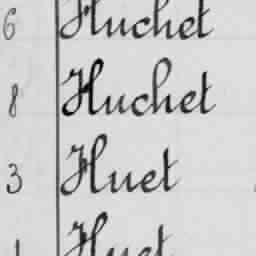 6 Huchet
8 Huchet
3 Huet
1 Huet